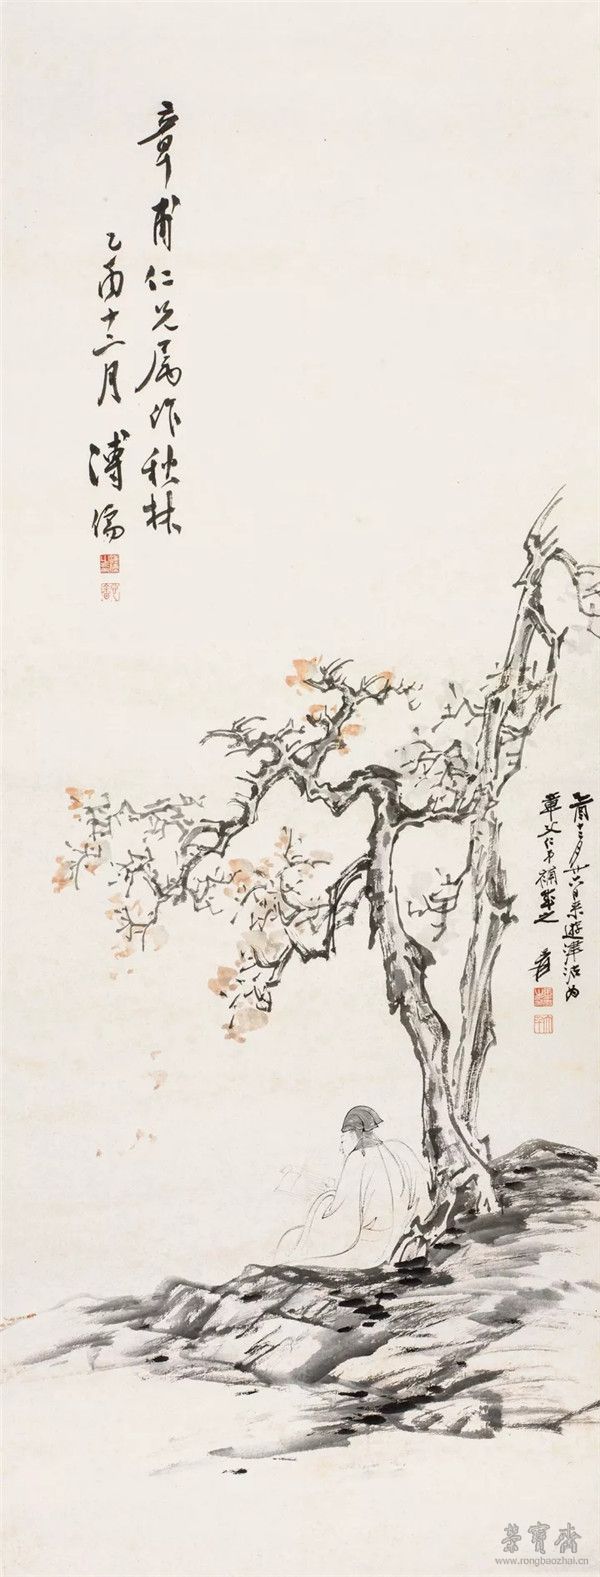 章甫仁兄属作秋林
乙酉十二月 溥儒
乙酉十二月廿六日来游津沽为
章父仁弟補成之 爰
荣寶齋
www.rongbaozhai.cn